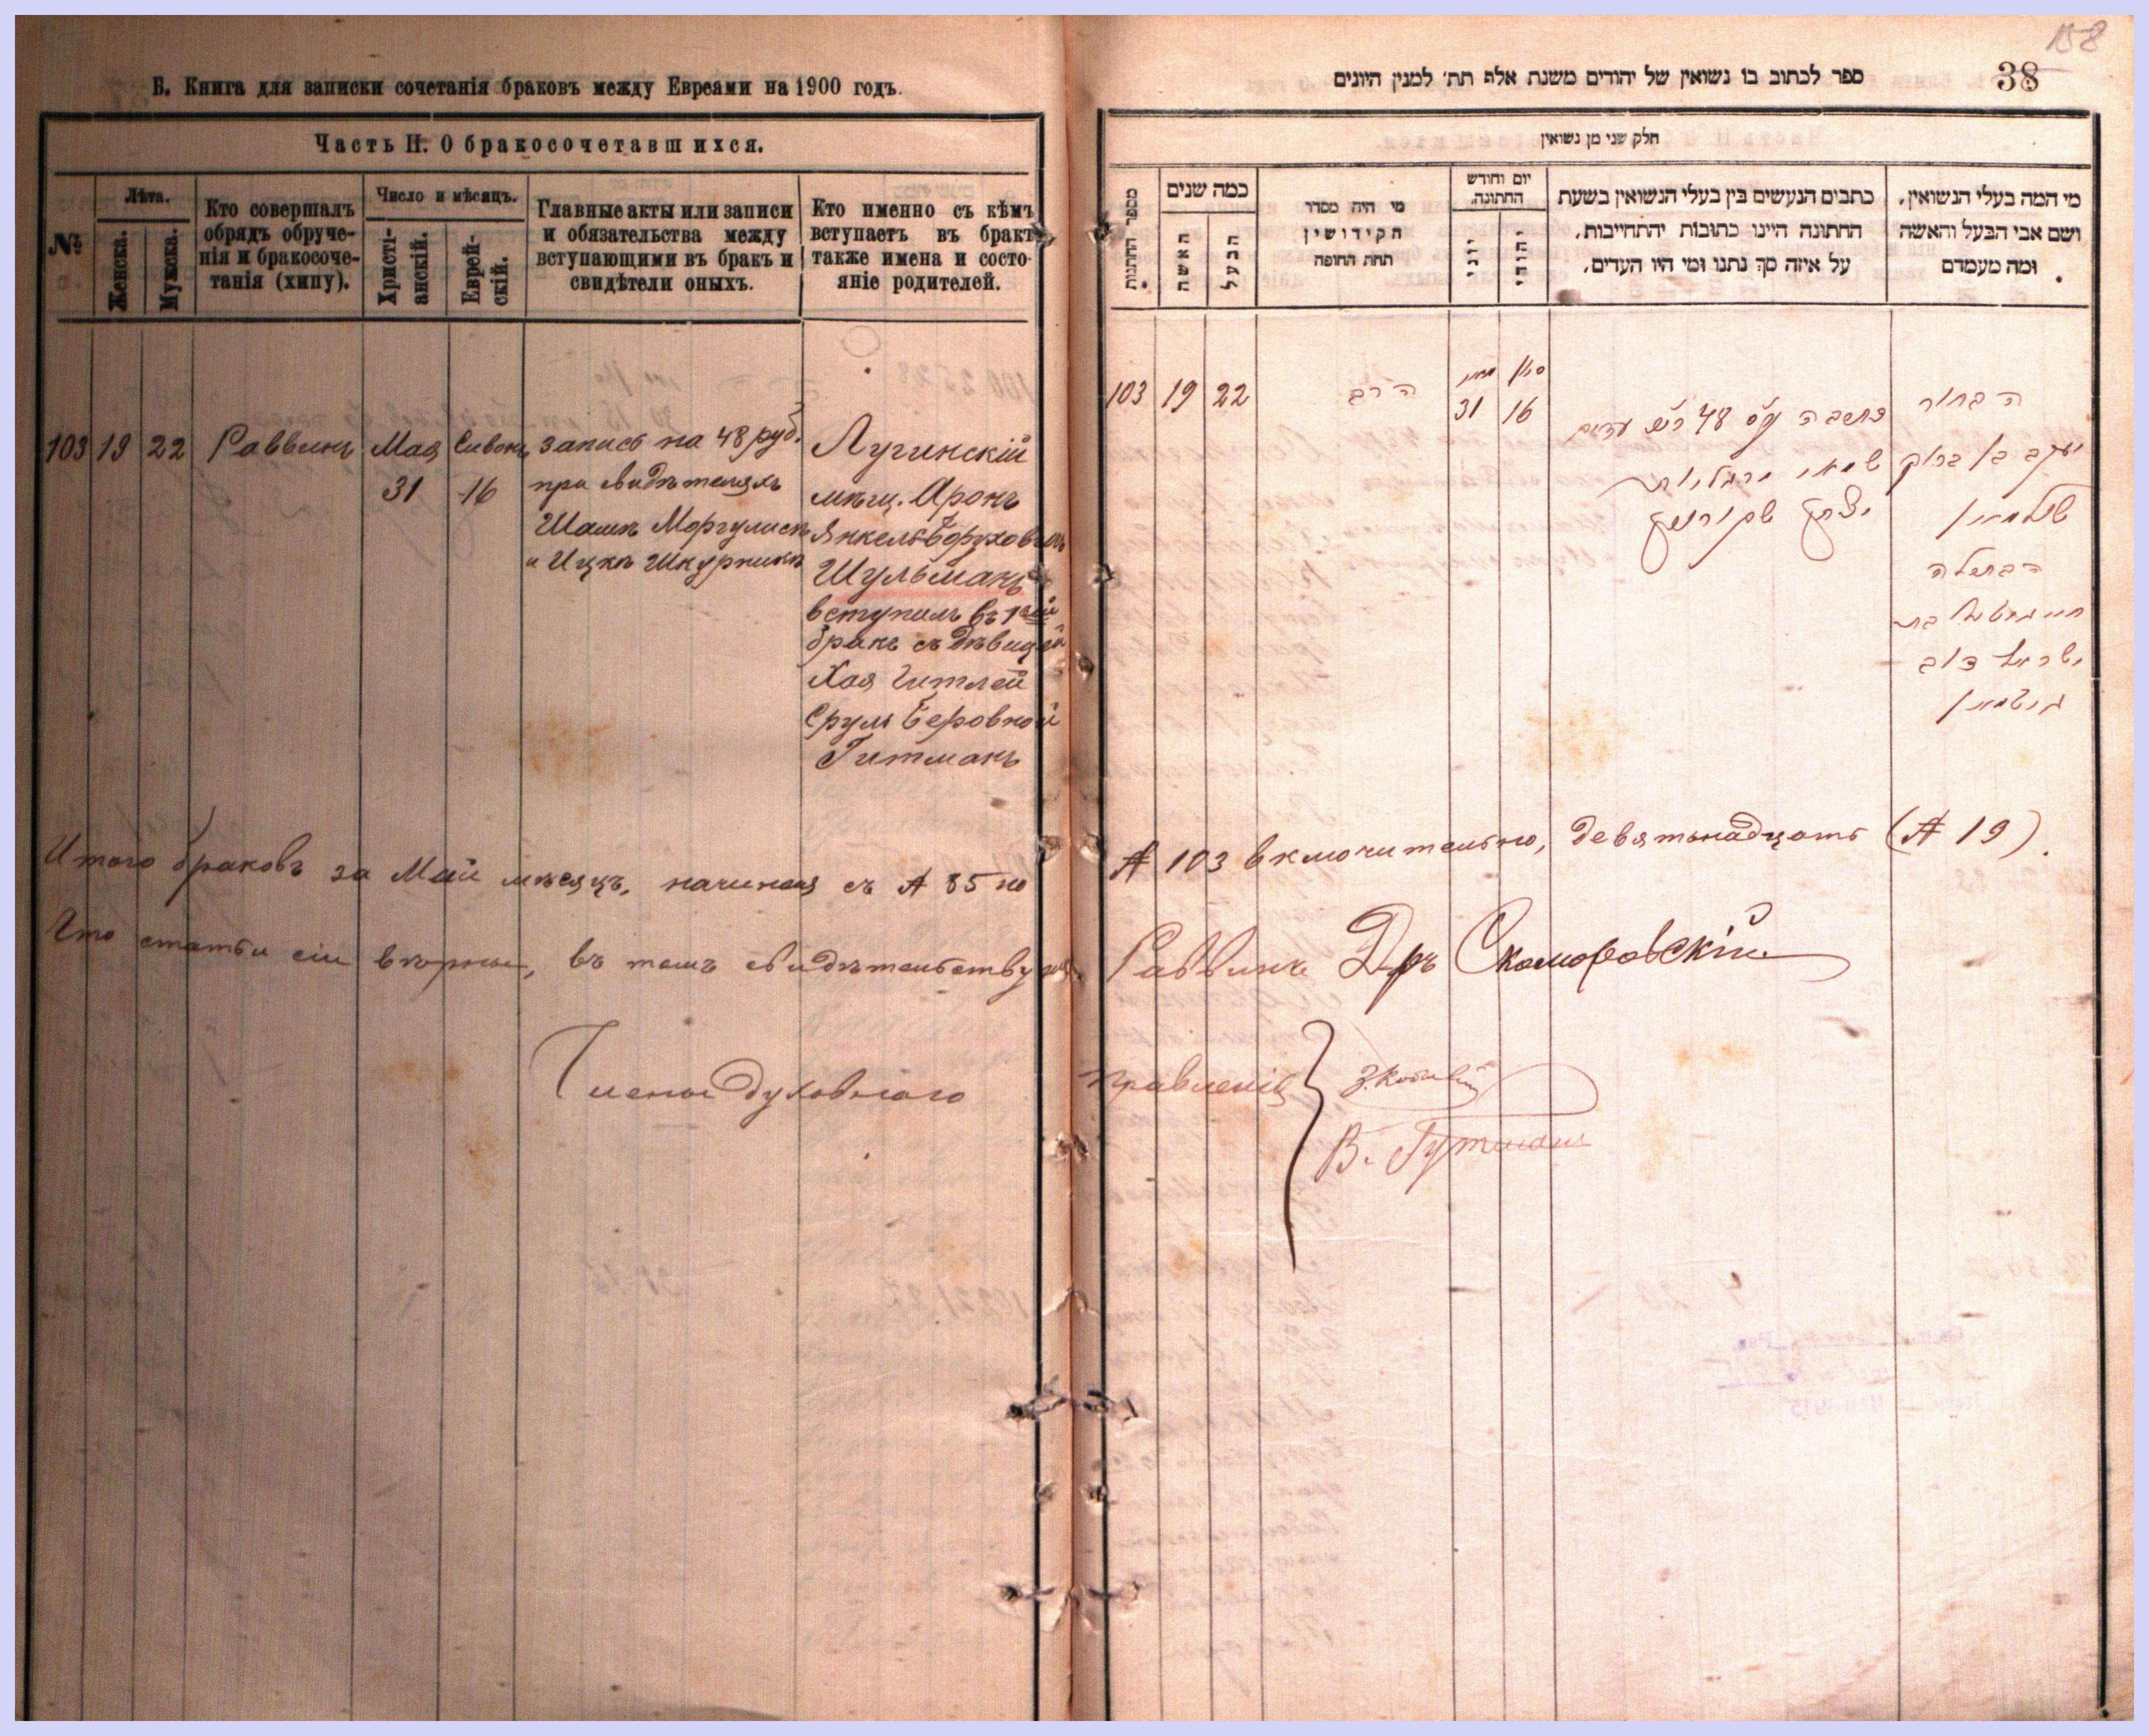 Б. Книга для записки сочетанія браковъ между Евреями на 1900 годъ.
Часть II. О бракосочетавшихся.
№
Лѣта.
Женска.
Мужска.
Кто совершалъ
обрядъ обруче-
нія и бракосоче-
танія (хипу).
Число и мѣсяцъ.
Христі-
анскій.
Еврей-
скій.
Главные акты или записи
и обязательства между
вступающими въ бракъ и
свидѣтели оныхъ.
Кто именно съ кѣмъ
вступаетъ въ бракъ
также имена и состо-
яніе родителей.
103 19 22 Раввинъ
Мая
31
Сивонъ
16
запись на 48 руб.
при свидѣтеляхъ
Шашкѣ Моргулисѣ
и Ицкѣ Шкурникѣ
Лугинскій
мѣщ. Аронъ
Янкель Боруховичъ
Шульманъ
вступилъ въ 1ый
бракъ съ дѣвицей
Хая Гитлей
Сруль Беровной
Гитманъ
Итого браковъ за Май мѣсяцъ, начиная съ № 85 по
Что статьи сіи вѣрны, въ томъ свидѣтельствуемъ
Члены духовнаго
158
38
ספר לכתוב בו נשואין של יהודים משנת אלף תת׳ למנין היונים
חלק שני מן נשואין
מי המה בעלי הנשואין,
ושם אבי הבעל והאשה
ומה מעמדם
כתבים הנעשים בין בעלי הנשואין בשעת
החתונה היינו כתובות יהתחייבות,
על איזה סך נתנו ומי היו העדים,
יום וחודש
החתונה,
יהודי
יוני
מי היה מסדר
הקידושין
תחת החופה
כמה שנים
הבעל
האשה
מספר החתנות
103 19 22
הרב
מאי
31
סיון
16
48
עדים
יצחק שקורניק
הבחור
יעקב בן ברוך
שולמאן
הבתולה
חיי גיטל בת
ישראל דוב
גיטמאן
№ 103 включительно, девятьнадцать (№ 19).
Раввинъ Д-ръ Скоморовскій
правленія
В. Гутманъ